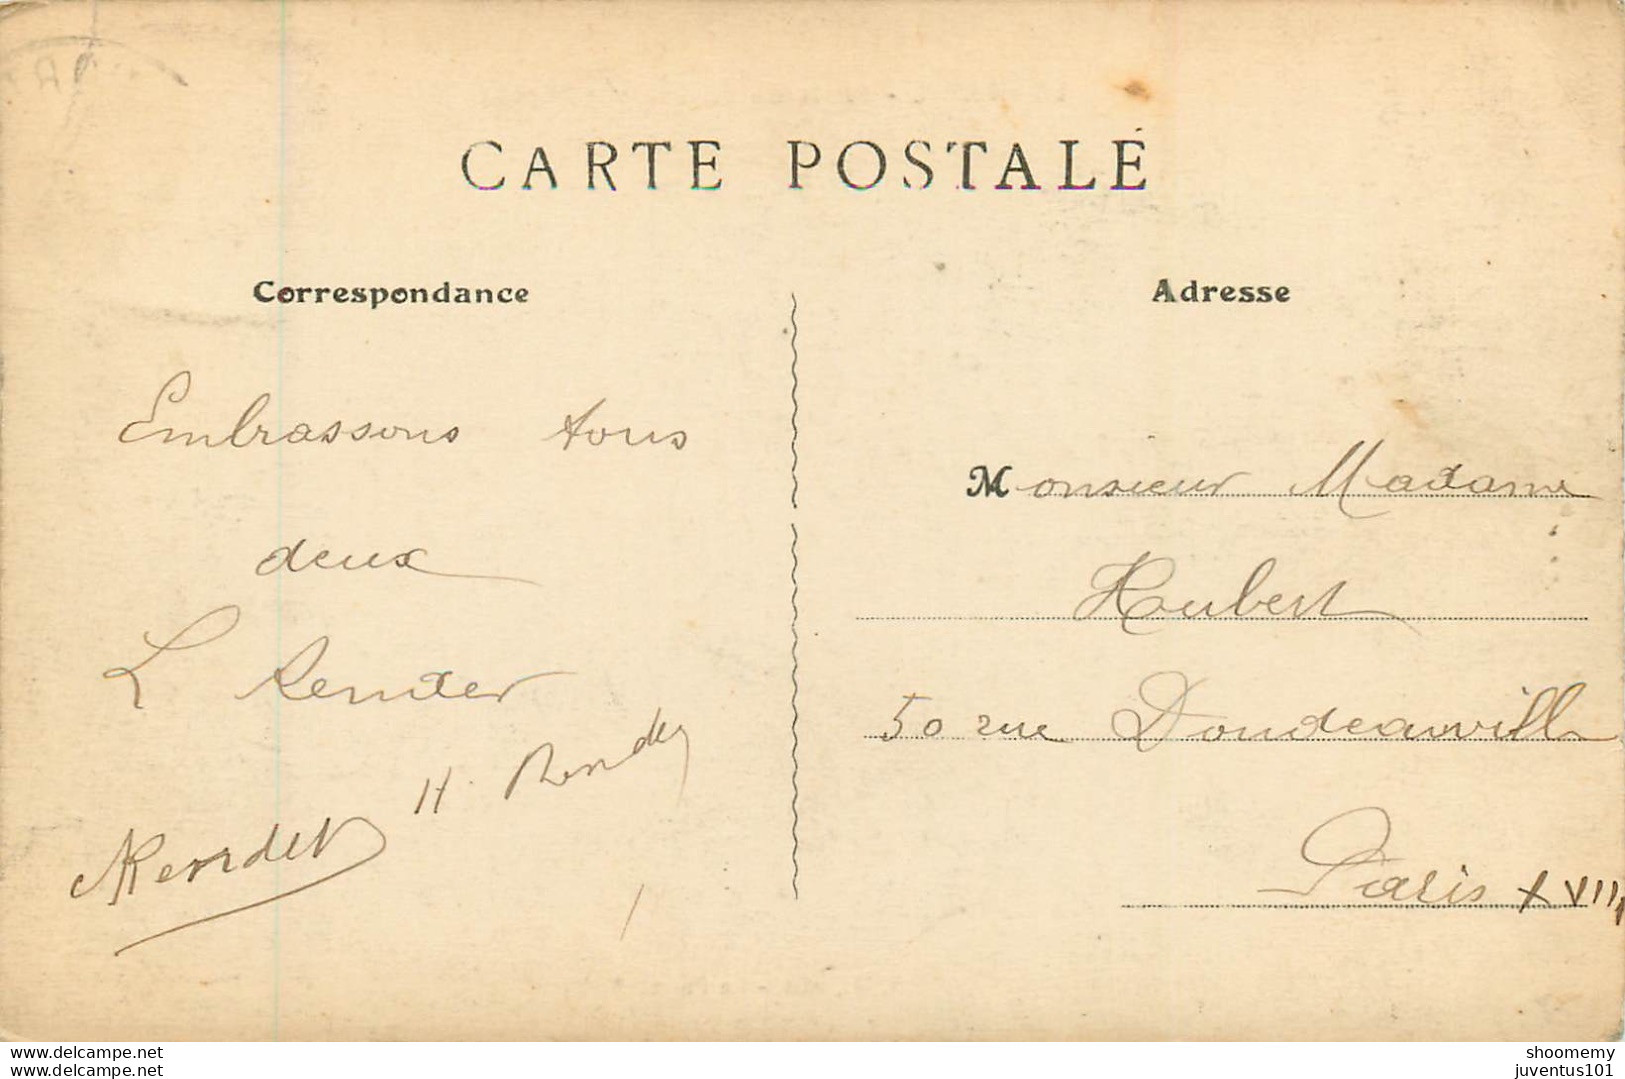 CARTE POSTALE
Correspondance
Adresse
Embrassons tous
deux
L Render
H. Render
Rendet
Monsieur Madame
Houbert
50 rue Doudeauville
Paris XVIII
www.delcampe.net
www.delcampe.net
shoomemy
juventus101